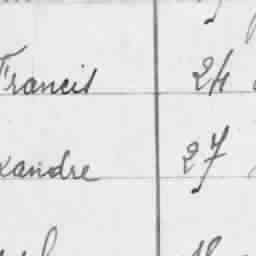 Francis 24
xandre 27